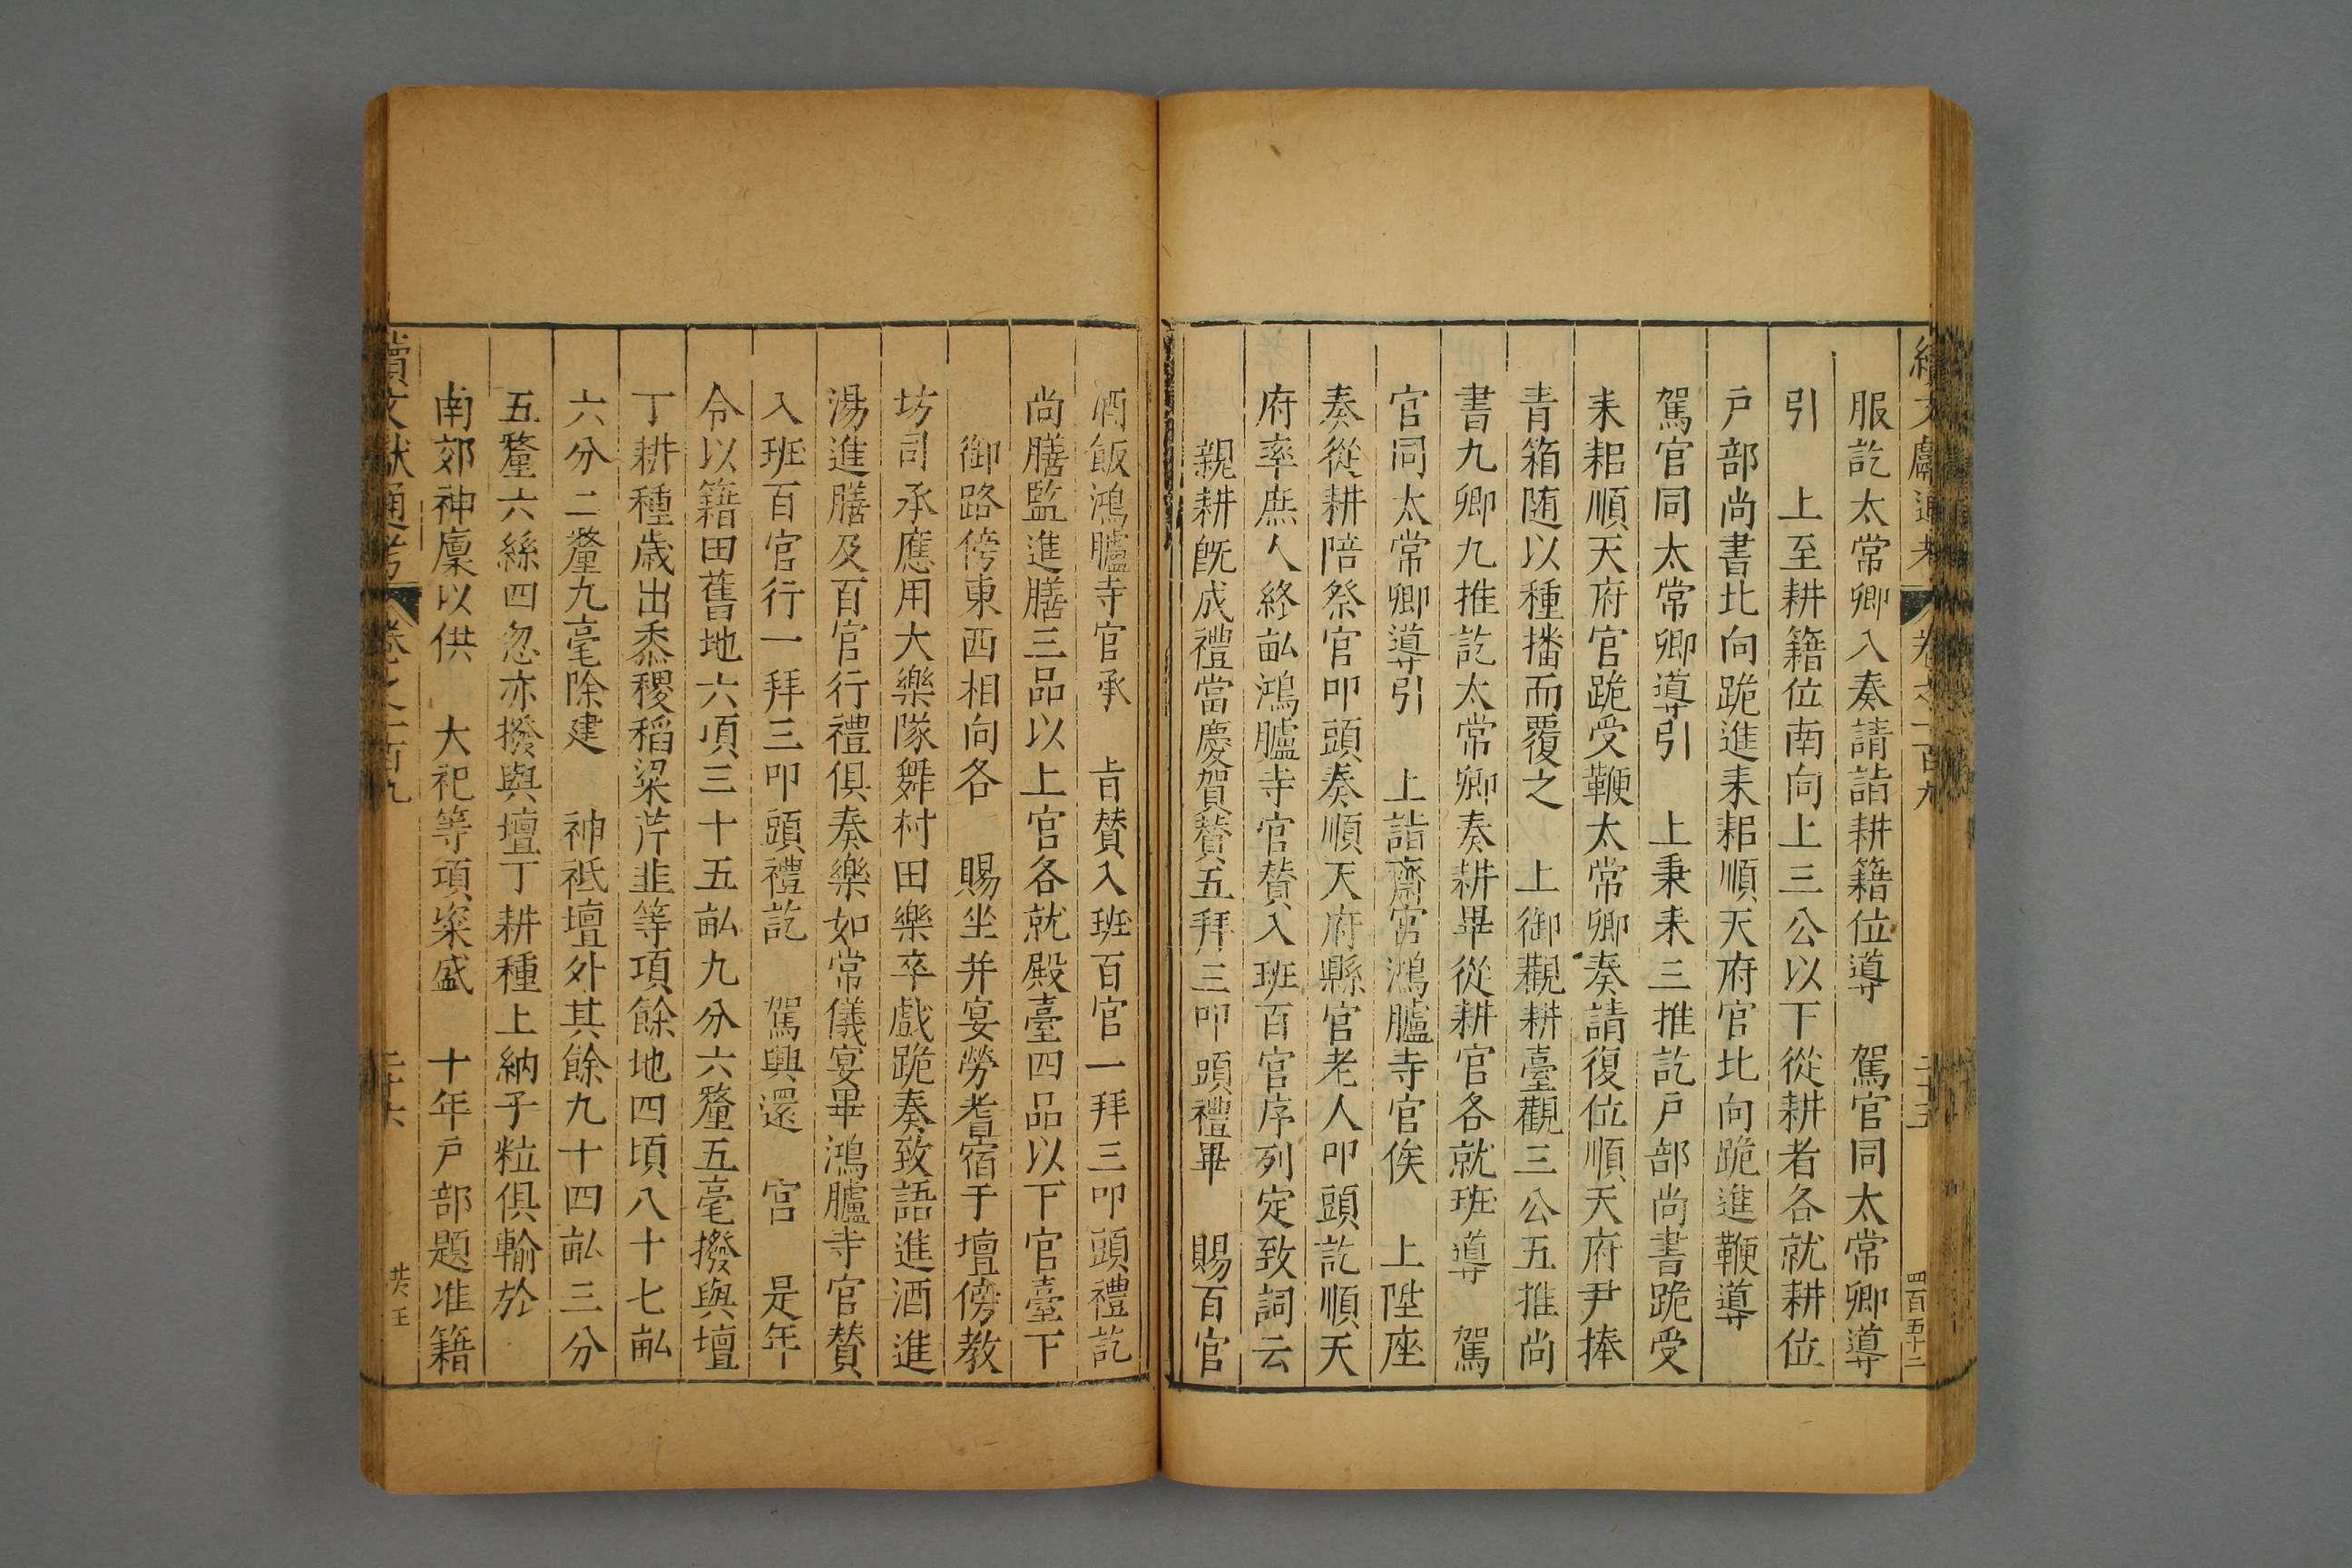 續文獻通考 卷之一百九 二十五 四百五十二
服訖太常卿入奏請詣耕籍位導 駕官同太常卿導
引 上至耕籍位南向上三公以下從耕者各就耕位
戶部尚書北向跪進耒耜順天府官北向跪進鞭導
駕官同太常卿導引 上秉耒三推訖戶部尚書跪受
耒耜順天府官跪受鞭太常卿奏請復位順天府尹捧
青箱随以種播而覆之 上御觀耕臺觀三公五推尚
書九卿九推訖太常卿奏耕畢從耕官各就班導 駕
官同太常卿導引 上詣齋宮鴻臚寺官俟 上陞座
奏從耕陪祭官叩頭奏順天府縣官老人叩頭訖順天
府率庶人終畝鴻臚寺官贊入班百官序列定致詞云
親耕旣成禮當慶賀贊五拜三叩頭禮畢 賜百官
酒飯鴻臚寺官承 旨贊入班百官一拜三叩頭禮訖
尚膳監進膳三品以上官各就殿臺四品以下官臺下
御路傍東西相向各 賜坐并宴勞耆宿于壇傍教
坊司承應用大樂隊舞村田樂卒戲跪奏致語進酒進
湯進膳及百官行禮俱奏樂如常儀宴畢鴻臚寺官贊
入班百官行一拜三叩頭禮訖 駕興還 宮 是年
令以籍田舊地六項三十五畝九分六釐五毫撥與壇
丁耕種歲出黍稷稻粱芹韭等項餘地四頃八十七畝
六分二釐九毫除建 神祗壇外其餘九十四畝三分
五釐六絲四忽亦撥與壇丁耕種上納子粒俱輸於
南郊神廩以供 大祀等項粢盛 十年戶部題准籍
續文獻通考 卷之一百九 二十六